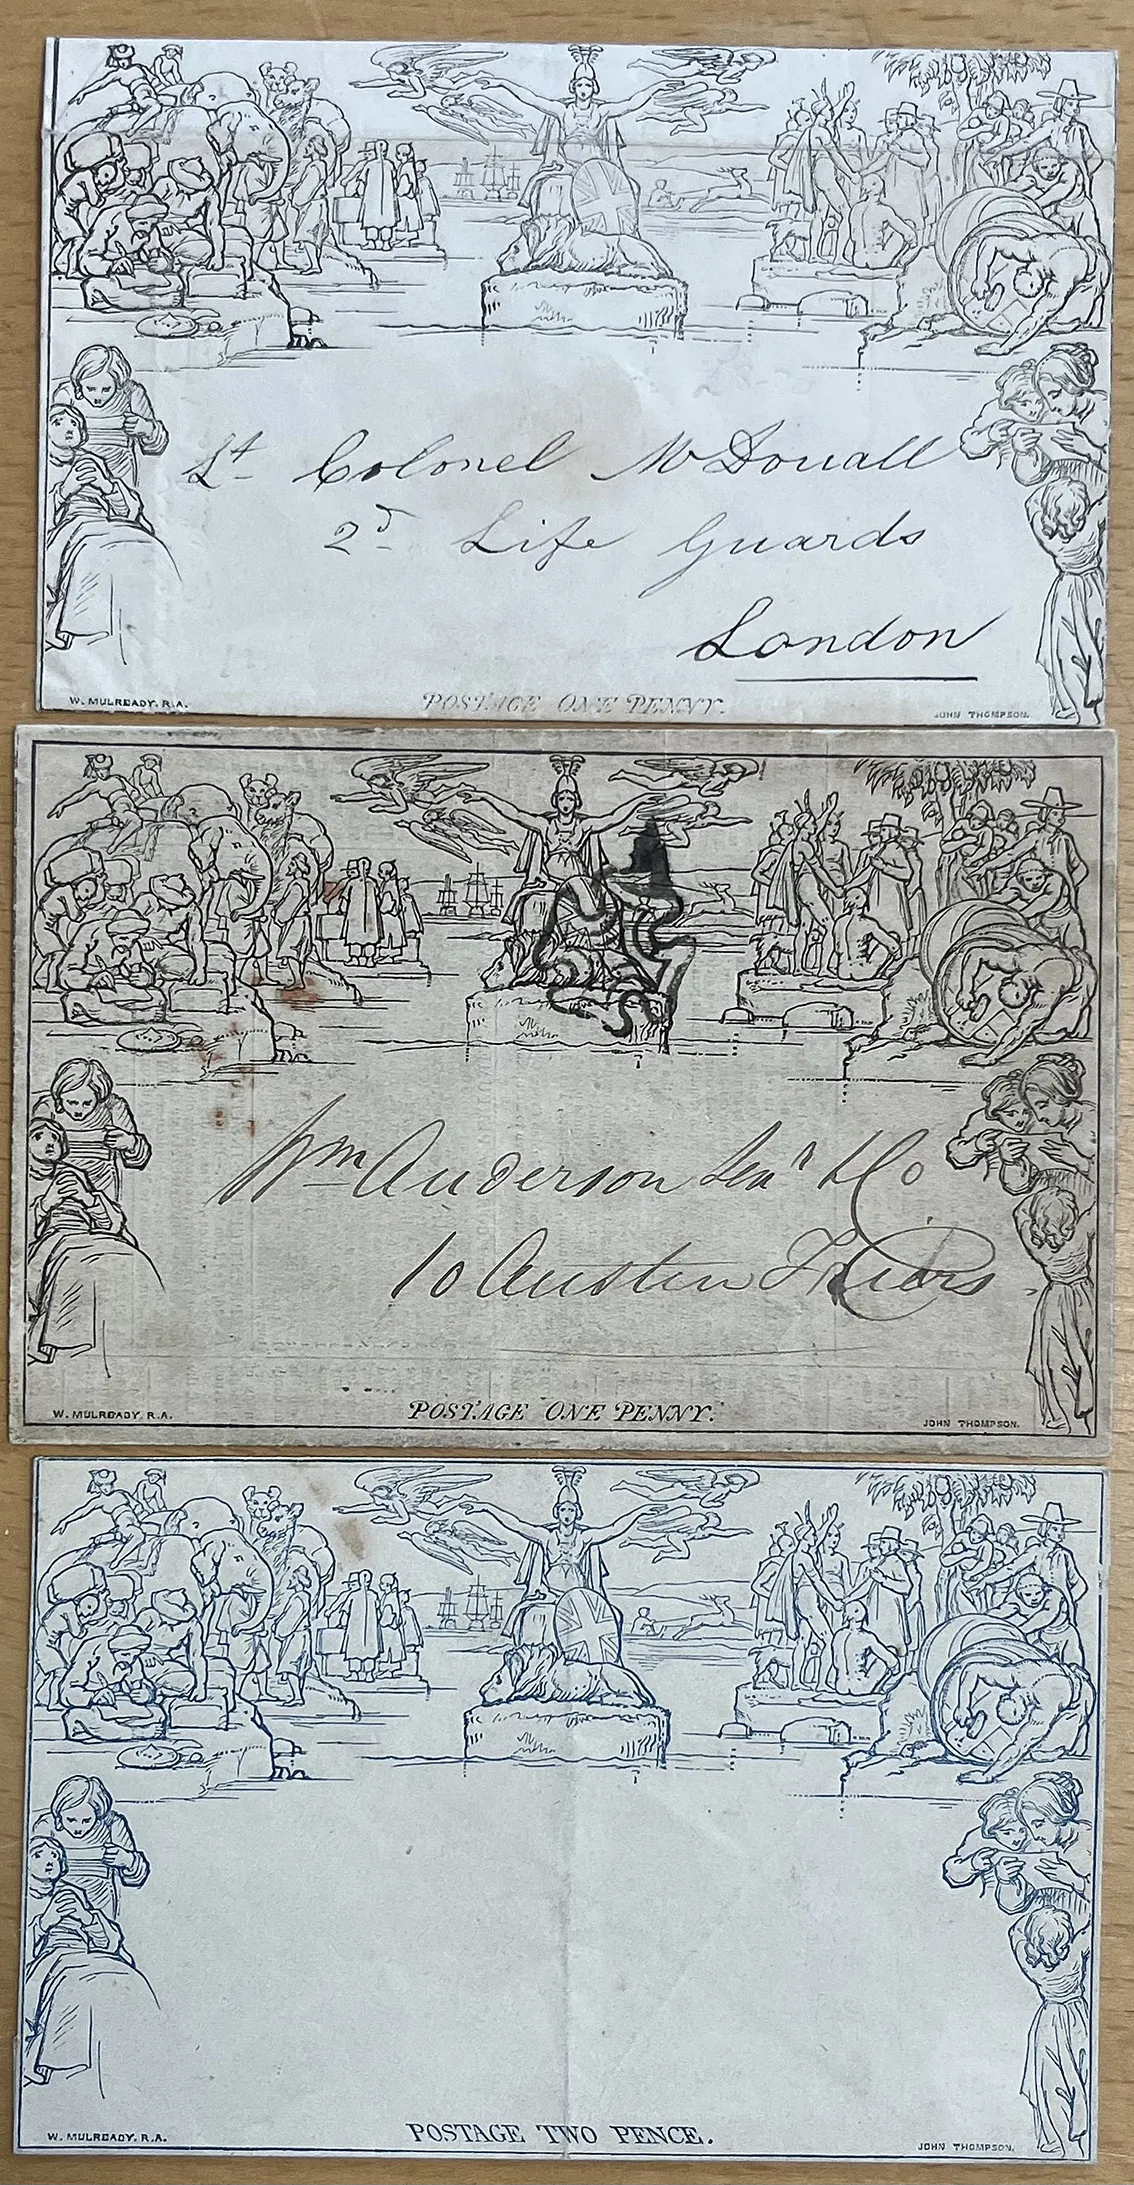 Lt Colonel McDouall
2d Life Guards
London
W. MULREADY. R.A.
POSTAGE ONE PENNY.
JOHN THOMPSON.
Wm Anderson Senr & Co
10 Austin Friars
W. MULREADY. R.A.
POSTAGE ONE PENNY.
JOHN THOMPSON.
W. MULREADY. R.A.
POSTAGE TWO PENCE.
JOHN THOMPSON.